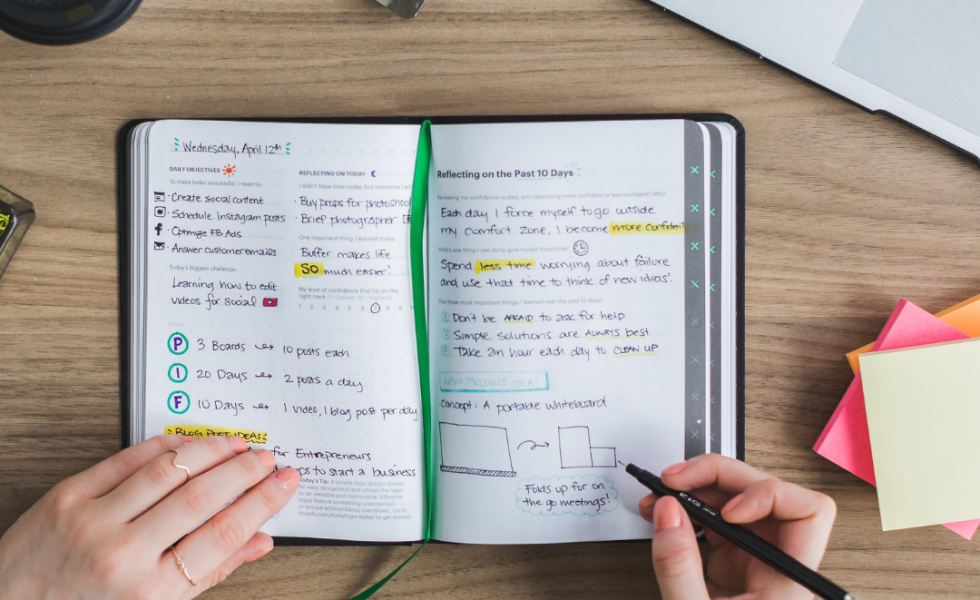 Wednesday, April 12th
DAILY OBJECTIVES
To make today successful, I need to
· Create social content
· Schedule Instagram posts
· Optimize FB Ads
· Answer customer emails
Today's biggest challenge
Learning how to edit
videos for social
P 3 Boards → 10 posts each
I 20 Days → 2 posts a day
F 10 Days → 1 video, 1 blog post per day
BLOG POST IDEAS:
for Entrepreneurs
to start a business
REFLECTING ON TODAY
I didn't have time today, but tomorrow I will
· Buy props for photoshoot
· Brief photographer
One important thing I learned today
Buffer makes life
SO much easier!
My level of confidence that I'm on the
right track
1 2 3 4 5 6 7 8 9
Today's Tip: A simple logo design allows
for easy recognition and allows the logo
to be versatile and memorable. Effective
logos feature something unexpected
or unique without being overdrawn. Go to
to get started
Reflecting on the Past 10 Days
Reviewing my confidence scales, am I becoming more confident or less confident? Why?
Each day I force myself to go outside
my comfort zone, I become more confident
What's one thing I can do to give myself more time?
Spend less time worrying about failure
and use that time to think of new ideas!
The three most important things I learned over the past 10 days?
1 Don't be AFRAID to ask for help
2 Simple solutions are ALWAYS best
3 Take an hour each day to CLEAN UP
NEW PRODUCT IDEA!
Concept: A portable whiteboard
Folds up for on
the go meetings!